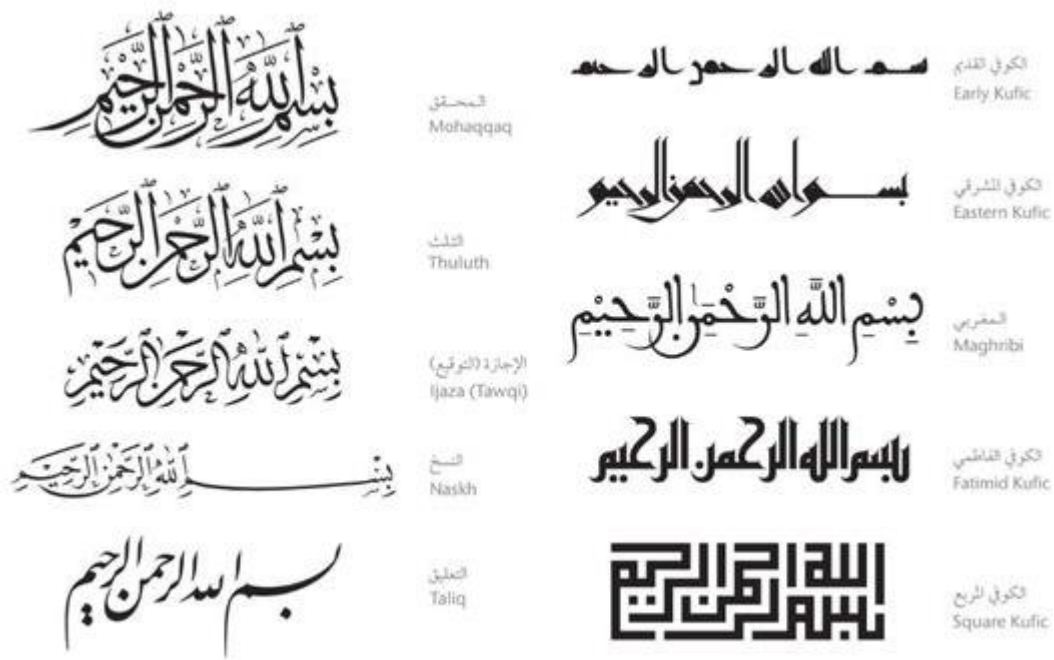 بِسْمِ اللَّهِ الرَّحْمٰنِ الرَّحِيمِ
المحقق
Mohaqqaq
بِسْمِ اللَّهِ الرَّحْمٰنِ الرَّحِيمِ
الثلث
Thuluth
بِسْمِ اللَّهِ الرَّحْمٰنِ الرَّحِيمِ
الإجازة (التوقيع)
Ijaza (Tawqi)
بِسْمِ اللَّهِ الرَّحْمٰنِ الرَّحِيمِ
النسخ
Naskh
بسم الله الرحمن الرحيم
التعليق
Taliq
بسم الله الرحمن الرحيم
الكوفي القديم
Early Kufic
بسم الله الرحمن الرحيم
الكوفي المشرقي
Eastern Kufic
بِسْمِ اللَّهِ الرَّحْمَٰنِ الرَّحِيْمِ
المغربي
Maghribi
بسم الله الرحمن الرحيم
الكوفي الفاطمي
Fatimid Kufic
بسم الله الرحمن الرحيم
الكوفي المربع
Square Kufic